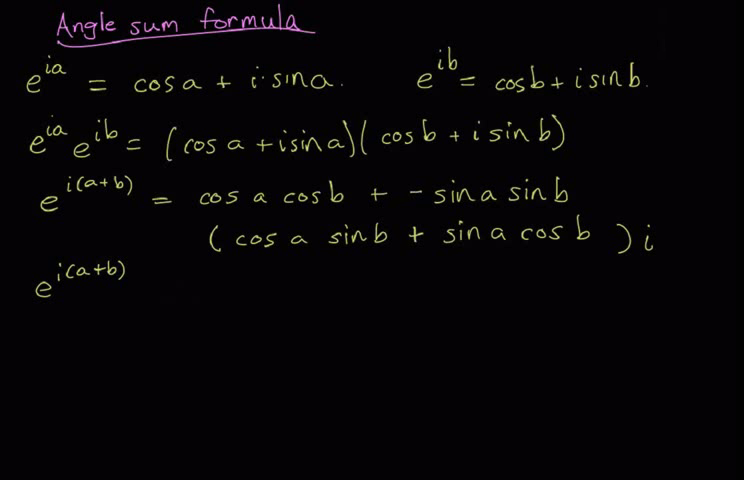 Angle sum formula
e^{ia} = cos a + i·sin a.    e^{ib} = cos b + i sin b.
e^{ia} e^{ib} = (cos a + i sin a)(cos b + i sin b)
e^{i(a+b)} = cos a cos b + - sin a sin b
(cos a sin b + sin a cos b) i
e^{i(a+b)}